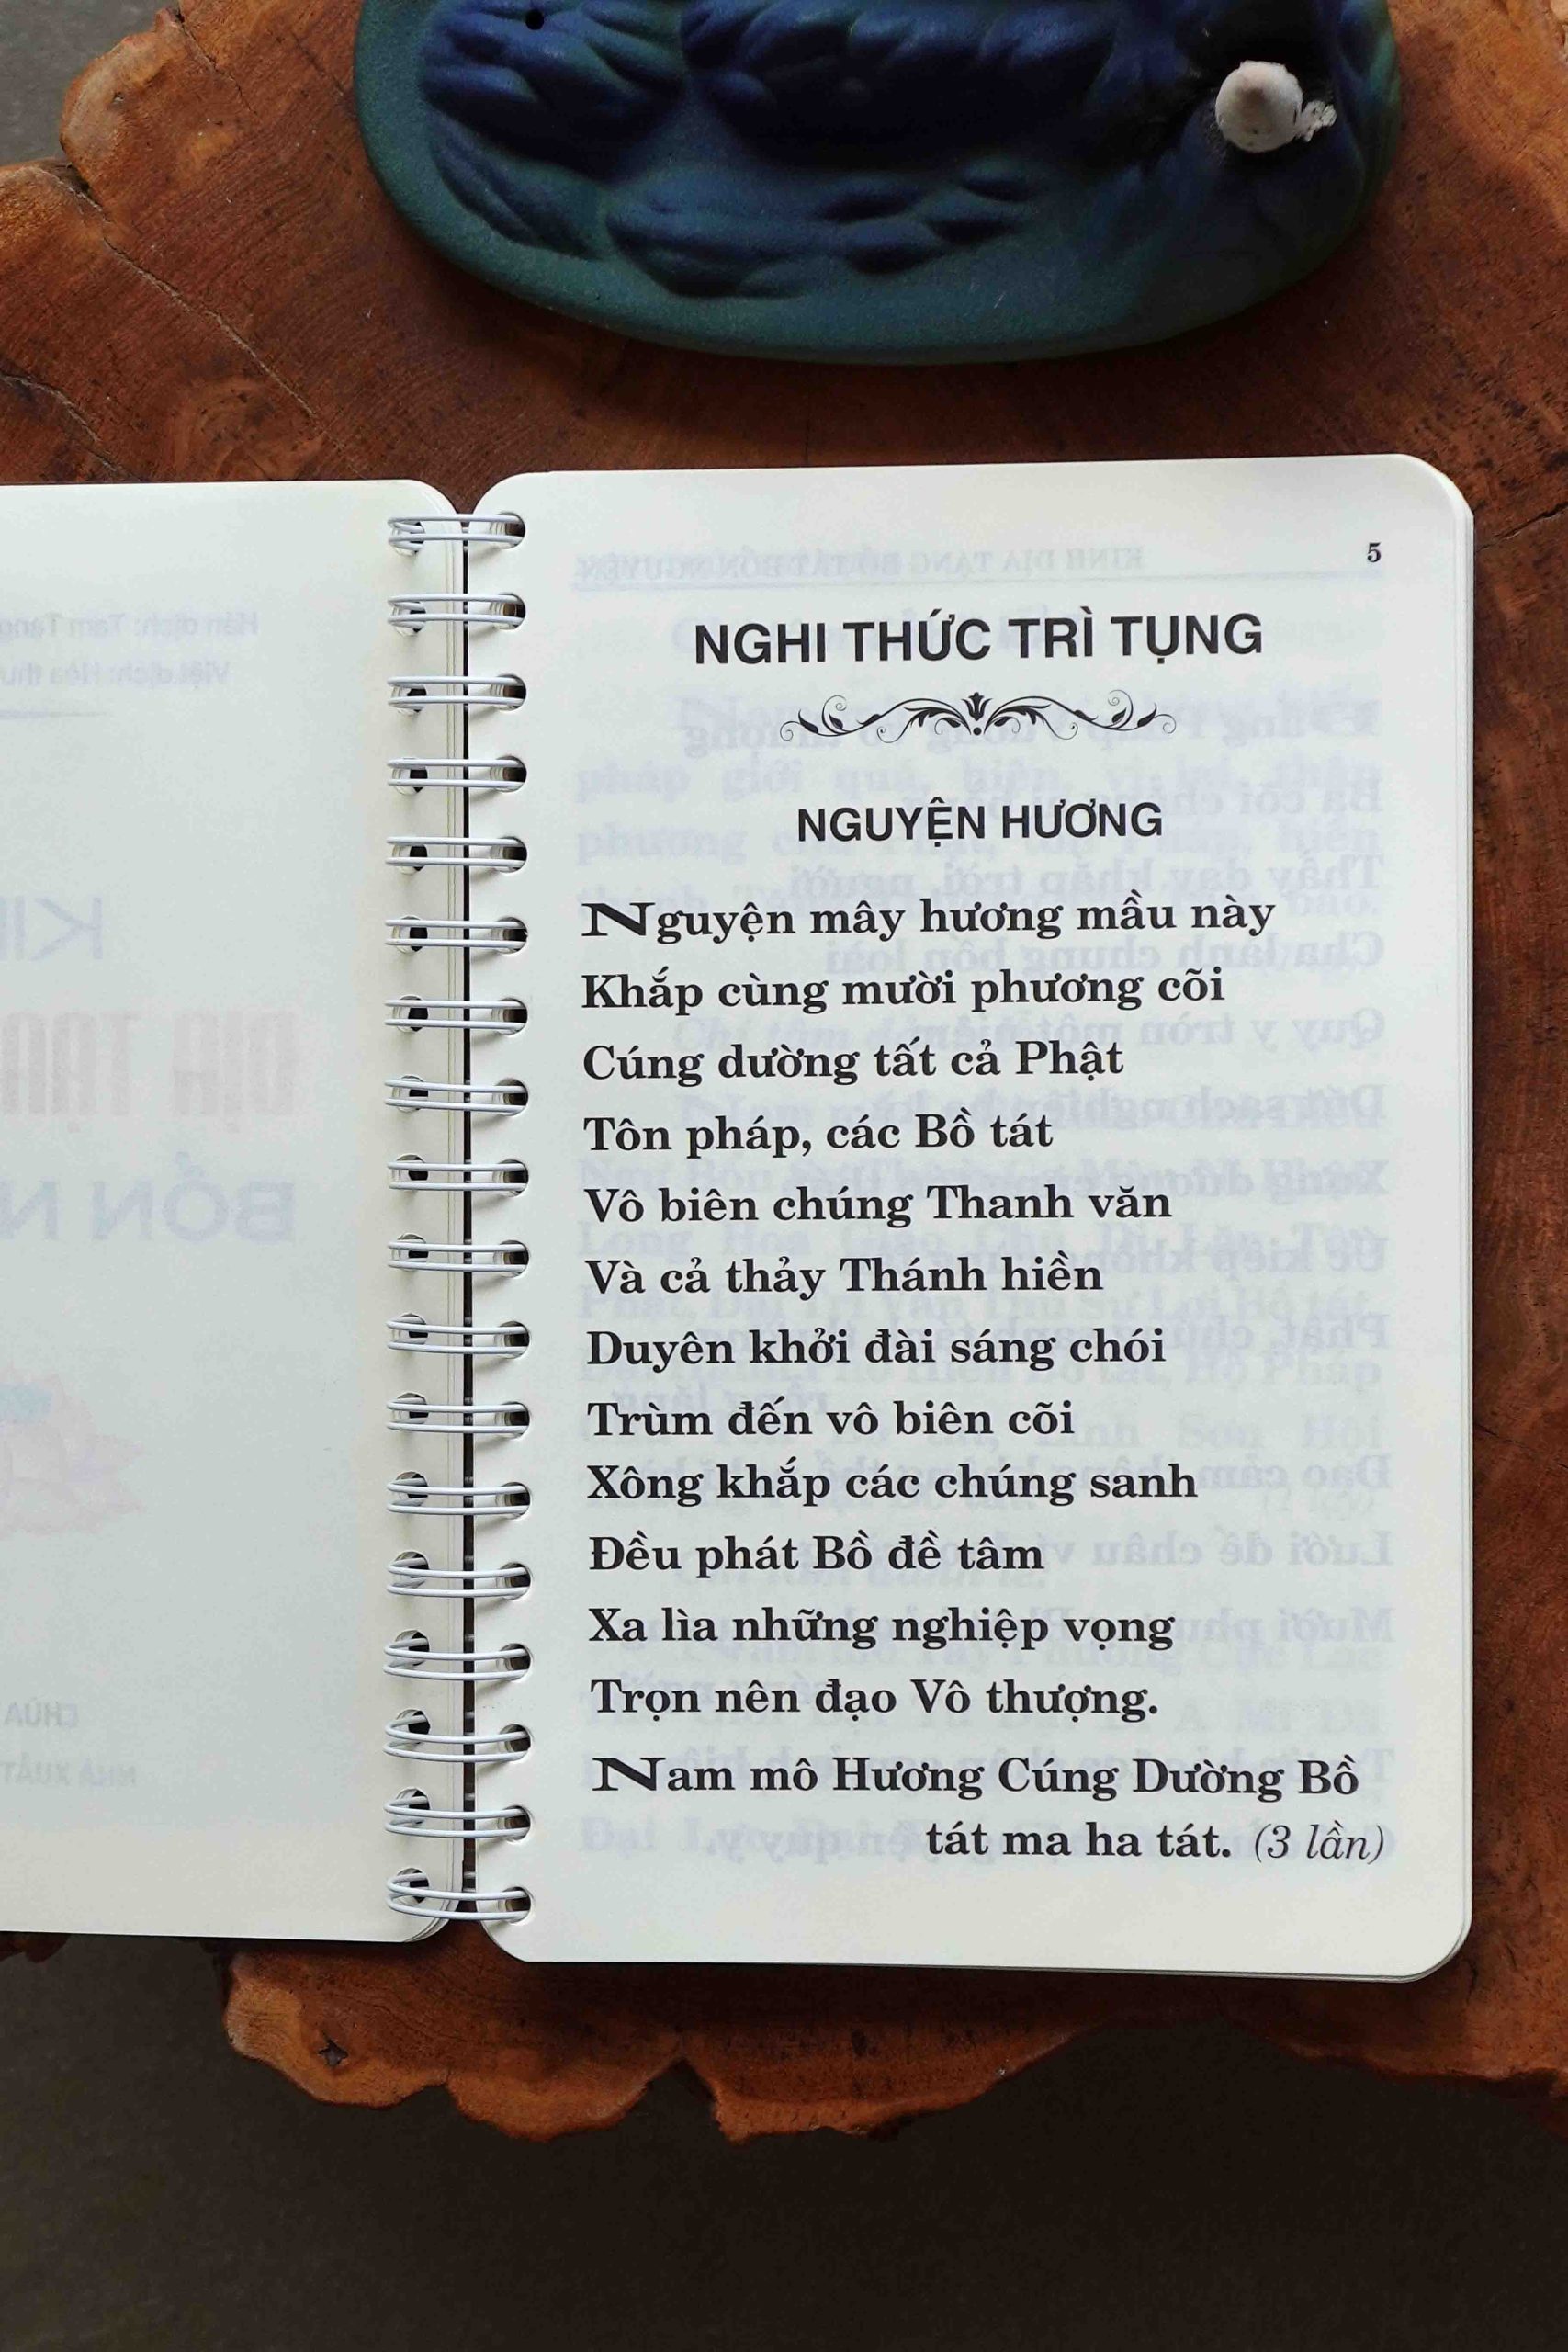 5
NGHI THỨC TRÌ TỤNG
NGUYỆN HƯƠNG
Nguyện mây hương mầu này
Khắp cùng mười phương cõi
Cúng dường tất cả Phật
Tôn pháp, các Bồ tát
Vô biên chúng Thanh văn
Và cả thảy Thánh hiền
Duyên khởi đài sáng chói
Trùm đến vô biên cõi
Xông khắp các chúng sanh
Đều phát Bồ đề tâm
Xa lìa những nghiệp vọng
Trọn nên đạo Vô thượng.
Nam mô Hương Cúng Dường Bồ
tát ma ha tát. (3 lần)